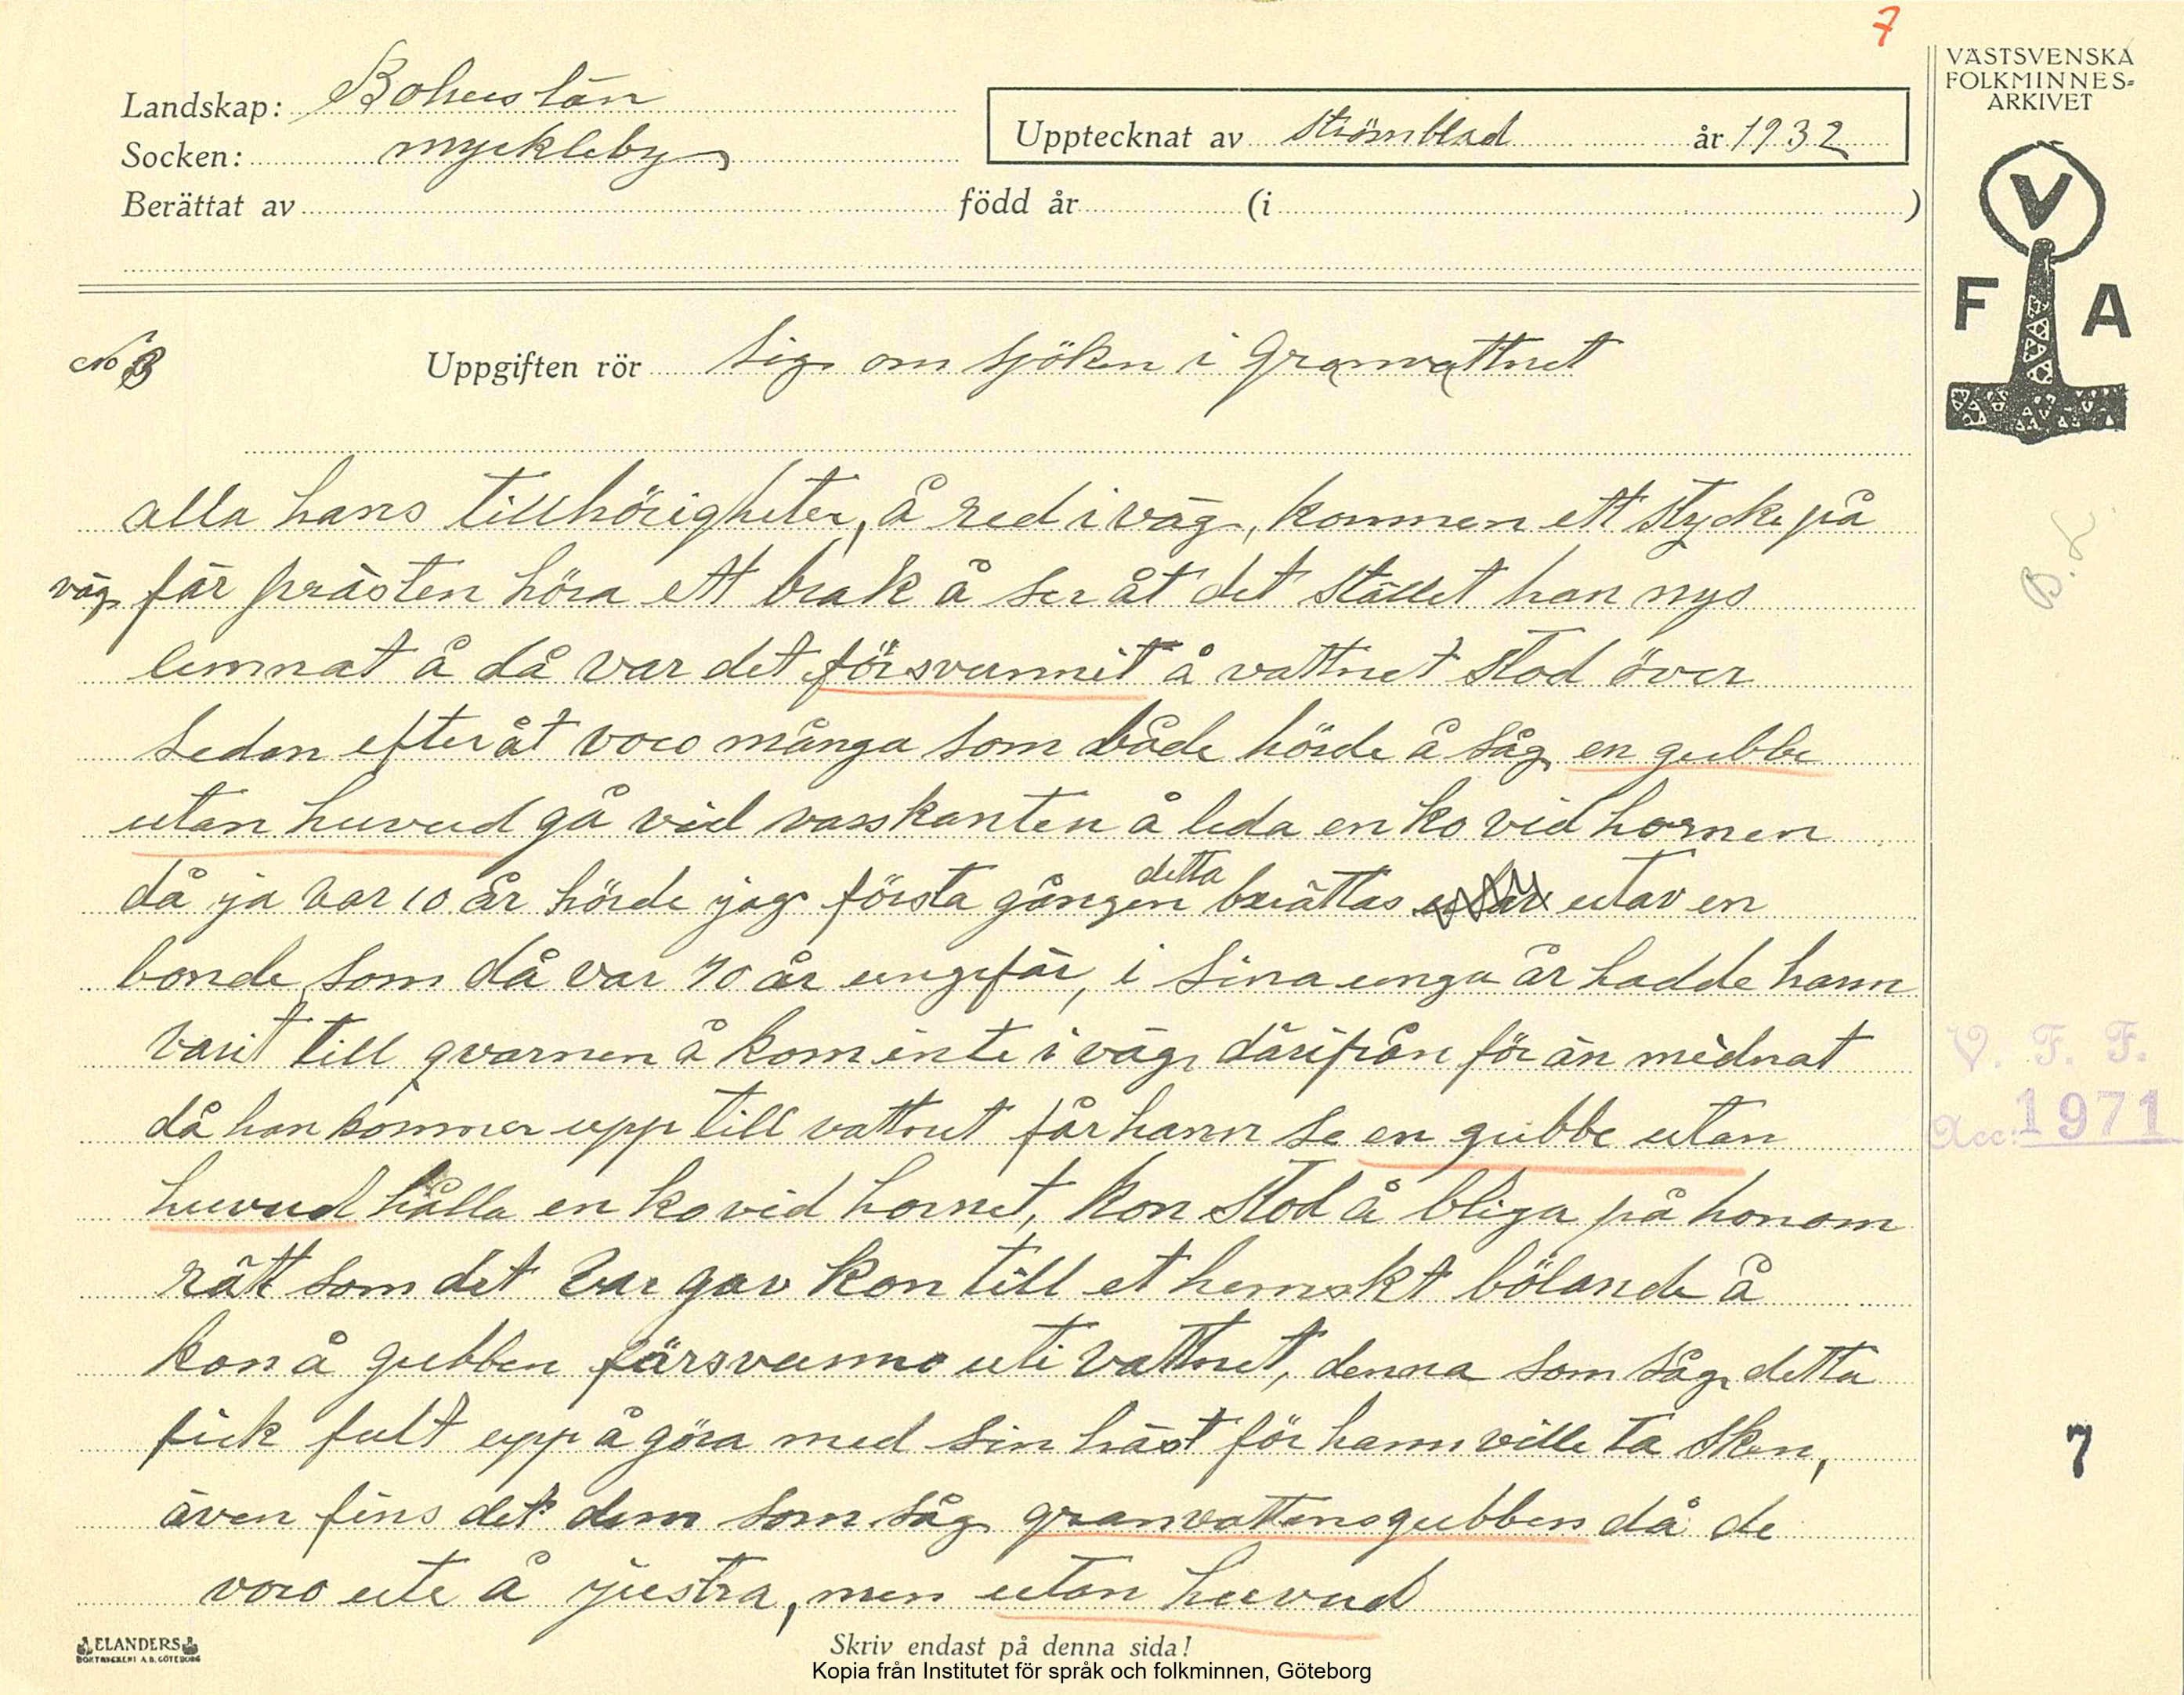 7
VÄSTSVENSKA
FOLKMINNES-
ARKIVET
Landskap: Bohuslän
Socken: myckleby
Upptecknat av Strömblad år 1932
Berättat av född år (i )
V
F A
No 3
Uppgiften rör Sig om sjökon i Granvattnet
alla hans tillhörigheter, å red i väg, kommen ett stycke på
väg får prästen höra ett brak å ser åt det stället han nys
lemnat å då var det försvunnit å vattnet stod över
Sedan efteråt voro många som både hörde å såg en gubbe
utan huvud gå vid vasskanten å leda en ko vid hornen
då ja var 10 år hörde jag första gången detta berättas utav en
bonde som då var 70 år ungefär, i sina unga år hadde hann
varit till qvarnen å kom inte i väg därifrån för än midnat
då han kommer upp till vattnet får hann se en gubbe utan
huvud hålla en ko vid hornet, kon stod å bliga på honom
rätt som det var gav kon till et hemskt bölande å
kon å gubben försvunno uti vattnet, denna som såg detta
fick fult upp å göra med sin häst för hann ville ta sken,
även fins det dem som såg granvattensgubben då de
voro ute å justra, men utan huvud
B. L.
V. F. F.
Acc: 1971
7
ELANDERS
BOKTRYCKERI A.B. GÖTEBORG
Skriv endast på denna sida!
Kopia från Institutet för språk och folkminnen, Göteborg